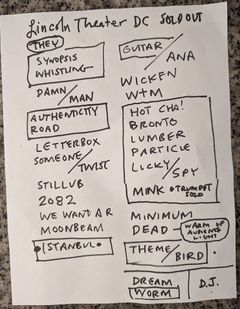 Lincoln Theater DC SOLD OUT
THEY
SYNOPSIS
WHISTLING
DAMN / MAN
AUTHENTICITY
ROAD
LETTERBOX
SOMEONE / TWIST
STILLUB
2082
WE WANT A R
MOONBEAM
ISTANBUL
GUITAR / ANA
WICKEN
WTM
HOT CHA!
BRONTO
LUMBER
PARTICLE
LUCKY / SPY
MINK • TRUMPET SOLO
MINIMUM
DEAD - WARM UP AUDIENCE LIGHT
THEME / BIRD
DREAM
WORM
D.J.